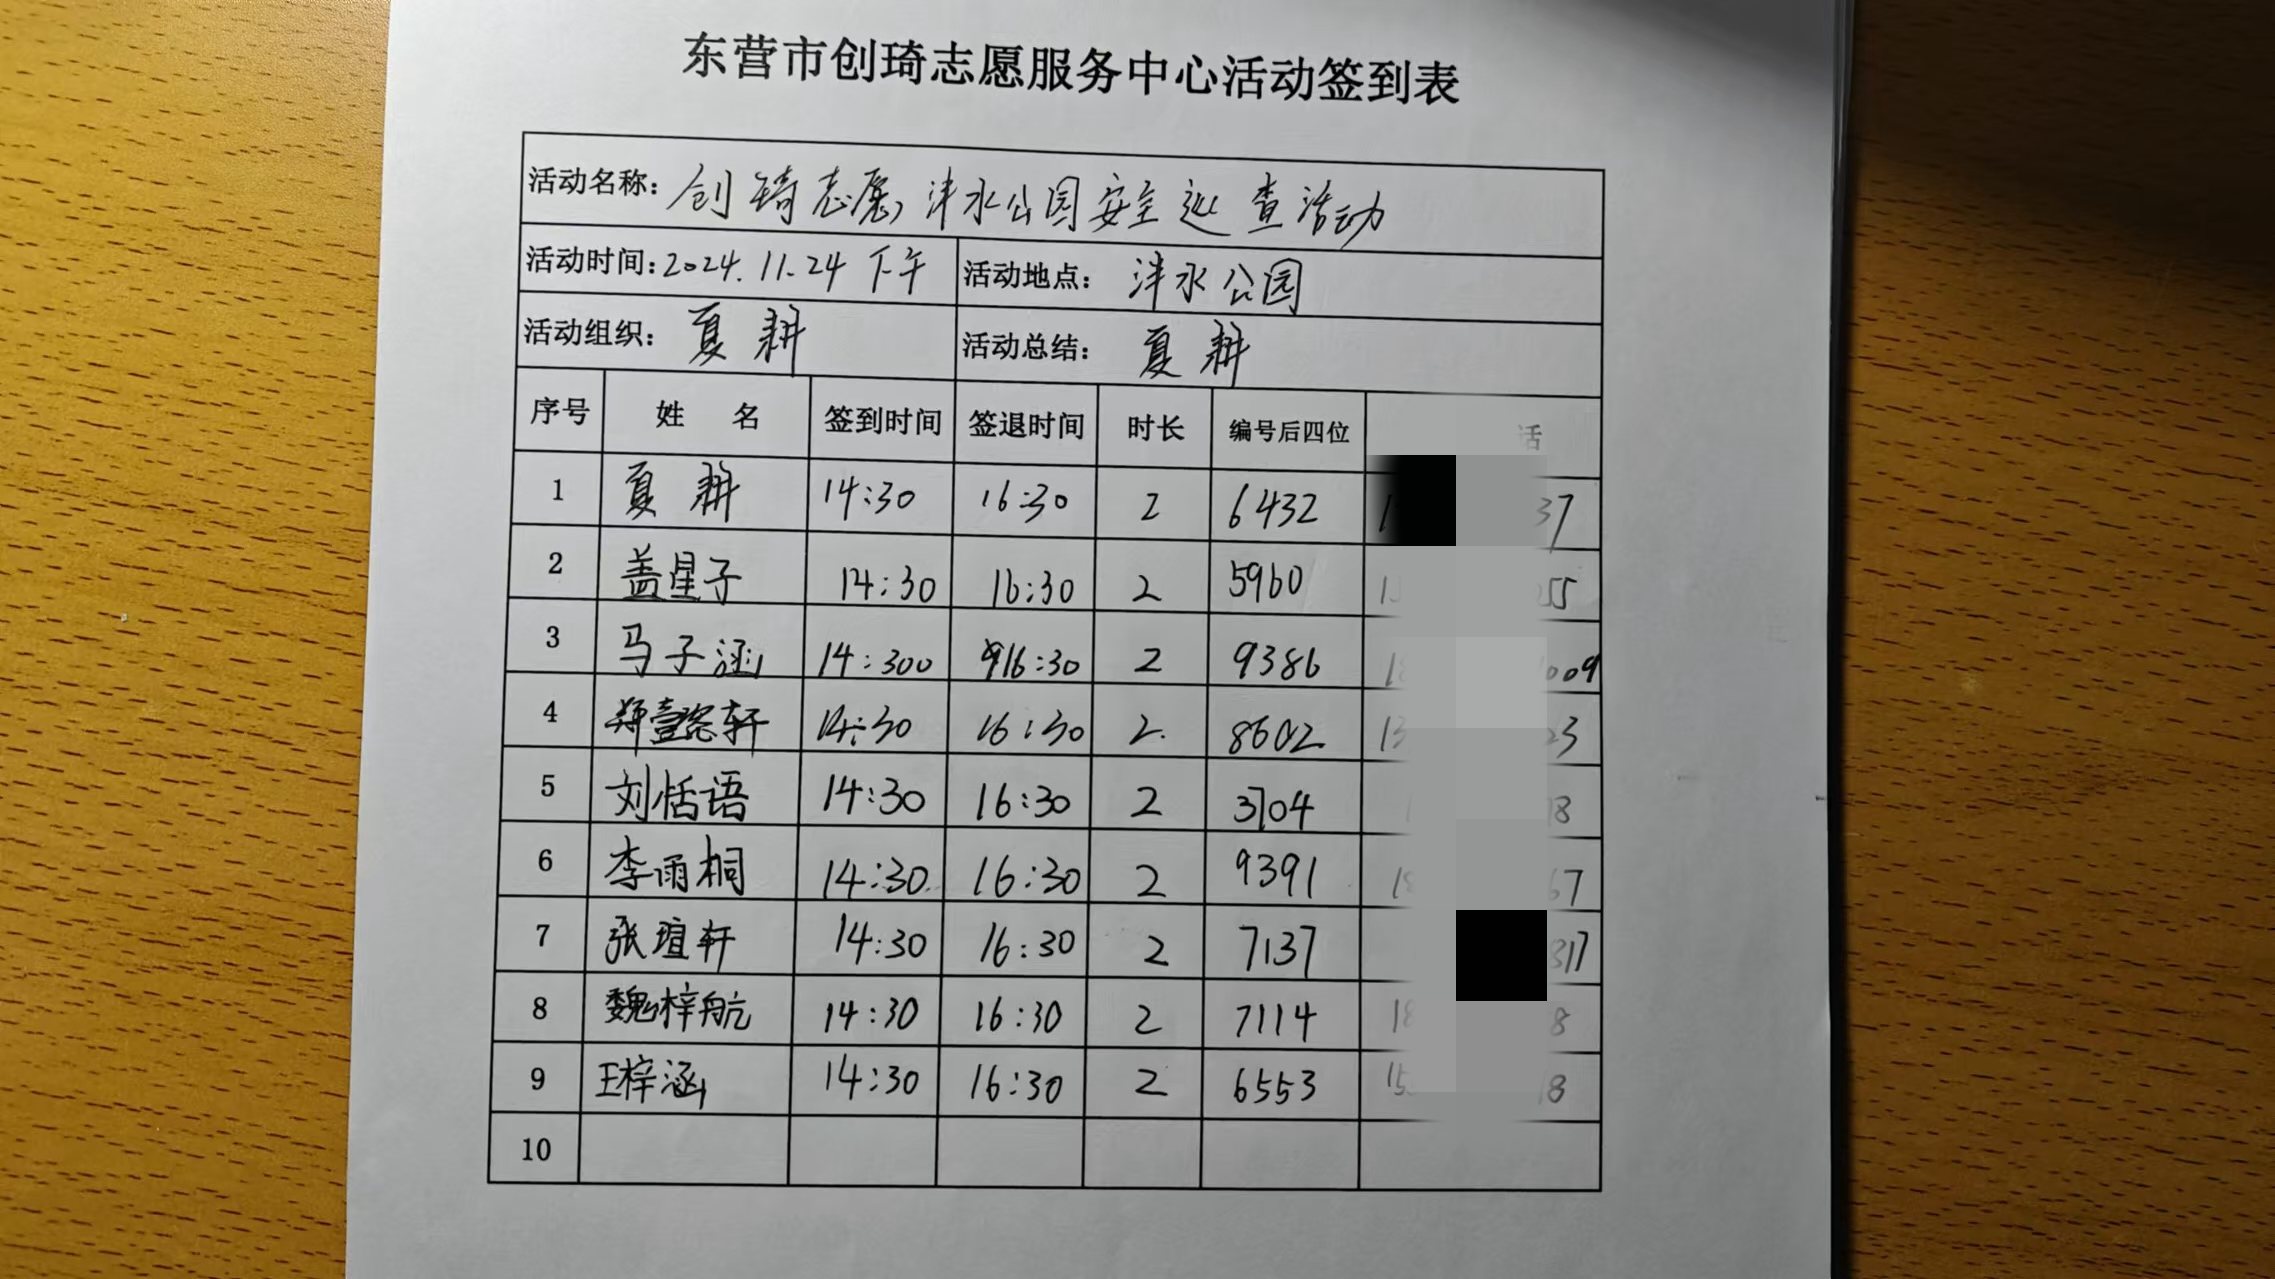 东营市创琦志愿服务中心活动签到表
活动名称：创琦志愿，沣水公园安全巡查活动
活动时间：2024.11.24 下午 活动地点：沣水公园
活动组织：夏耕 活动总结：夏耕
序号 姓名 签到时间 签退时间 时长 编号后四位 话
1 夏耕 14:30 16:30 2 6432 1 37
2 盖星子 14:30 16:30 2 5960 55
3 马子涵 14:300 16:30 2 9386 18 009
4 郑壹容轩 14:30 16:30 2. 8602 13 23
5 刘恬语 14:30 16:30 2 3704 18
6 李雨桐 14:30 16:30 2 9391 18 67
7 张瑄轩 14:30 16:30 2 7137 317
8 魏梓航 14:30 16:30 2 7114 18 8
9 王梓涵 14:30 16:30 2 6553 15 18
10